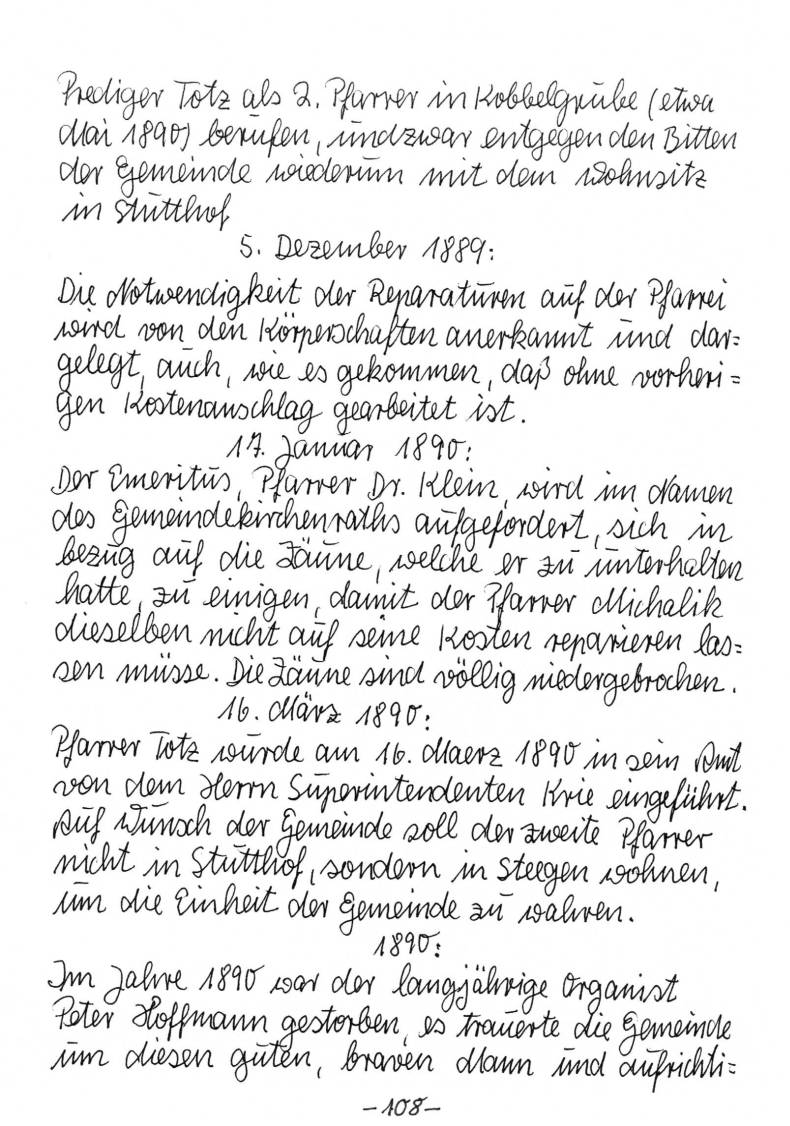 Prediger Totz als 2. Pfarrer in Kobbelgrube (etwa
Mai 1890) berufen, und zwar entgegen den Bitten
der Gemeinde wiederum mit dem Wohnsitz
in Stutthof
5. Dezember 1889:
Die Notwendigkeit der Reparaturen auf der Pfarrei
wird von den Körperschaften anerkannt und dar=
gelegt, auch, wie es gekommen, daß ohne vorheri=
gen Kostenanschlag gearbeitet ist.
17. Januar 1890:
Der Emeritus, Pfarrer Dr. Klein, wird im Namen
des Gemeindekirchenraths aufgefordert, sich in
bezug auf die Zäune, welche er zu unterhalten
hatte, zu einigen, damit der Pfarrer Michalik
dieselben nicht auf seine Kosten reparieren las=
sen müsse. Die Zäune sind völlig niedergebrochen.
16. März 1890:
Pfarrer Totz wurde am 16. Maerz 1890 in sein Amt
von dem Herrn Superintendenten Krie eingeführt.
Auf Wunsch der Gemeinde soll der zweite Pfarrer
nicht in Stutthof, sondern in Steegen wohnen,
um die Einheit der Gemeinde zu wahren.
1890:
Im Jahre 1890 war der langjährige Organist
Peter Hoffmann gestorben, es trauerte die Gemeinde
um diesen guten, braven Mann und aufrichti=
-108-